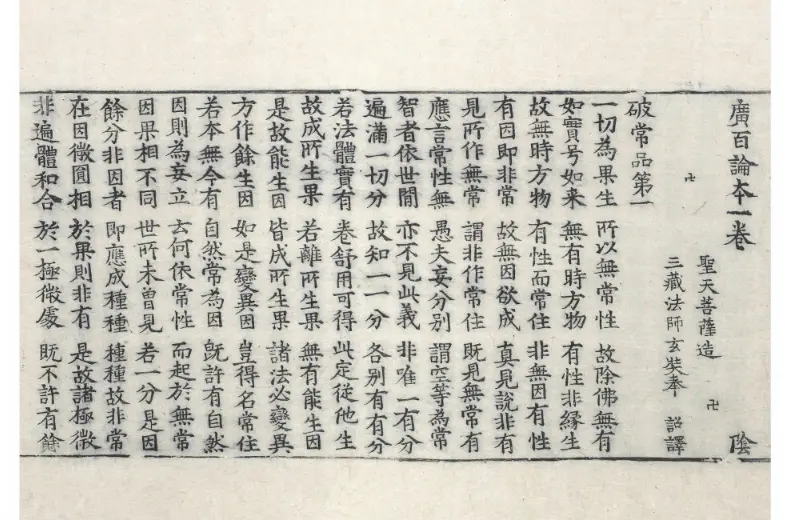 廣百論本一卷 陰
聖天菩薩造 卍
卍 三藏法師玄奘奉 詔譯
破常品第一
一切為果生 所以無常性 故除佛無有
如實号如来 無有時方物 有性非緣生
故無時方物 有性而常住 非無因有性
有因即非常 故無因欲成 真見說非有
見所作無常 謂非作常住 既見無常有
應言常性無 愚夫妄分別 謂空等為常
智者依世閒 亦不見此義 非唯一有分
遍滿一切分 故知一一分 各別有有分
若法體實有 卷舒用可得 此定從他生
故成所生果 若離所生果 無有能生因
是故能生因 皆成所生果 諸法必變異
方作餘生因 如是變異因 豈得名常住
若本無今有 自然常為因 既許有自然
因則為妄立 云何依常性 而起於無常
因果相不同 世所未曾見 若一分是因
餘分非因者 即應成種種 種種故非常
在因微圓相 於果則非有 是故諸極微
非遍體和合 於一極微處 既不許有餘